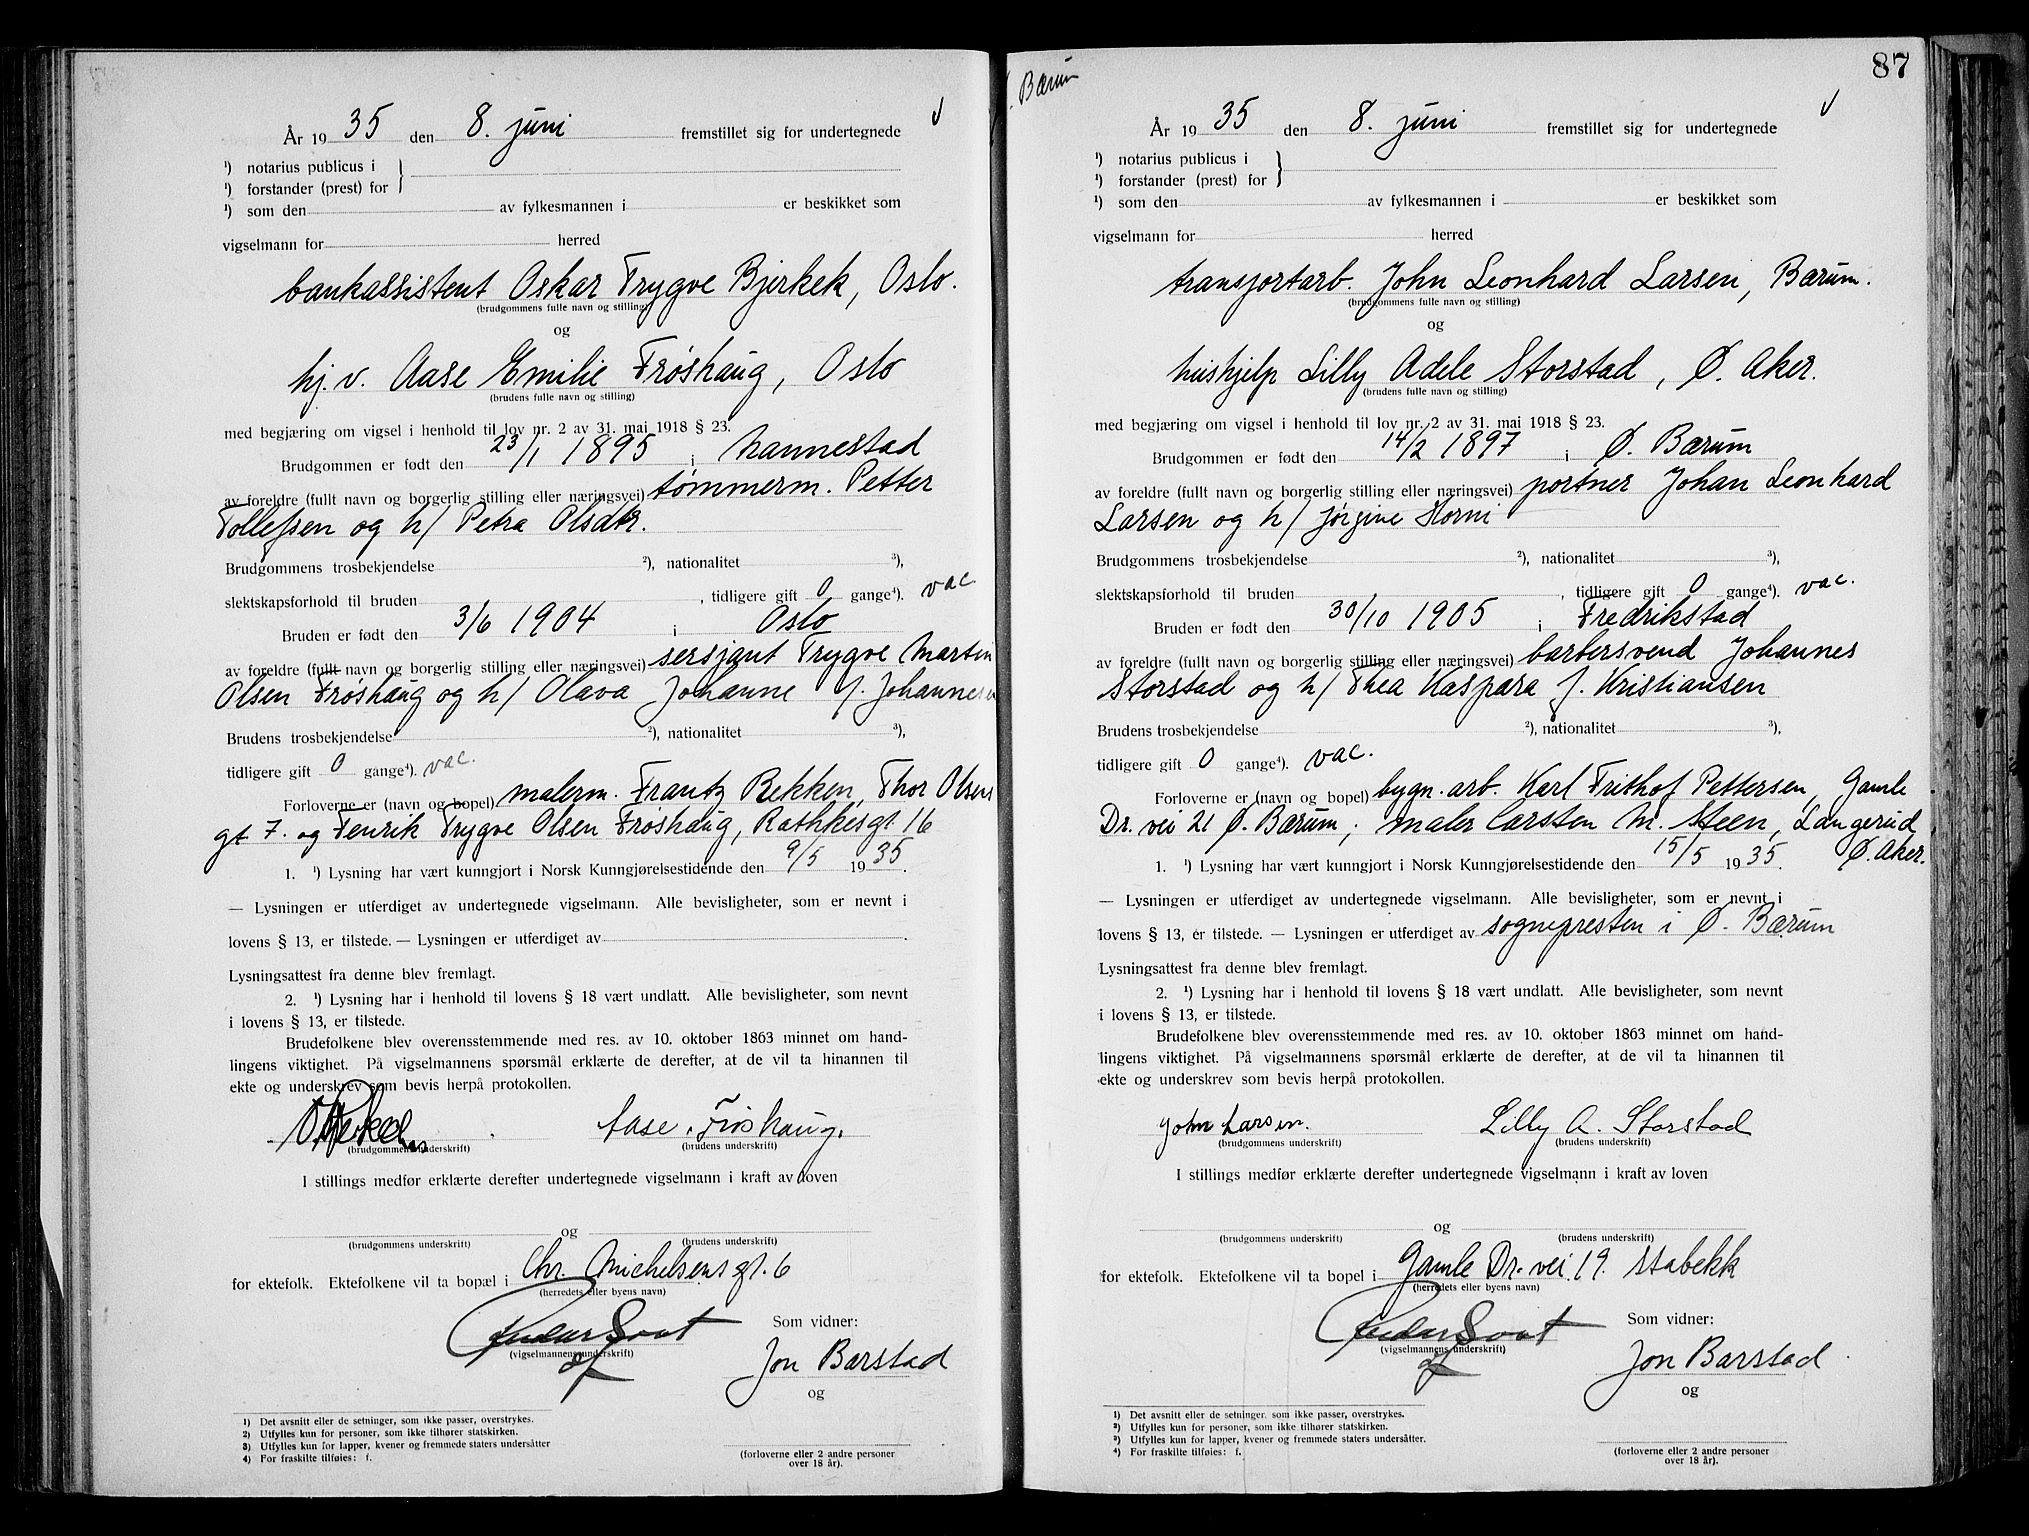 År 1935 den 8. juni fremstillet sig for undertegnede
¹) notarius publicus i
¹) forstander (prest) for
¹) som den av fylkesmannen i er beskikket som
vigselmann for herred
bankassistent Oskar Trygve Bjerkek, Oslo.
(brudgommens fulle navn og stilling)
og
hj.v. Aase Emilie Frøshaug, Oslo
(brudens fulle navn og stilling)
med begjæring om vigsel i henhold til lov nr. 2 av 31. mai 1918 § 23.
Brudgommen er født den 23/1 1895 i Nannestad
av foreldre (fullt navn og borgerlig stilling eller næringsvei) tømmerm. Petter
Tollefsen og h/ Petra Olsdtr.
Brudgommens trosbekjendelse ²), nationalitet ³),
slektskapsforhold til bruden , tidligere gift 0 gange⁴). vac
Bruden er født den 3/6 1904 i Oslo
av foreldre (fullt navn og borgerlig stilling eller næringsvei) sersjant Trygve Martin
Olsen Frøshaug og h/ Olava Johanne f. Johannesen
Brudens trosbekjendelse ²), nationalitet ³),
tidligere gift 0 gange⁴). vac.
Forloverne er (navn og bopel) malerm. Frantz Bekken, Thor Olsens
gt 7. og Henrik Trygve Olsen Frøshaug, Rathkesgt. 16
1. ¹) Lysning har vært kunngjort i Norsk Kunngjørelsestidende den 9/5 1935.
— Lysningen er utferdiget av undertegnede vigselmann. Alle bevisligheter, som er nevnt i
lovens § 13, er tilstede. — Lysningen er utferdiget av
Lysningsattest fra denne blev fremlagt.
2. ¹) Lysning har i henhold til lovens § 18 vært undlatt. Alle bevisligheter, som nevnt
i lovens § 13, er tilstede.
Brudefolkene blev overensstemmende med res. av 10. oktober 1863 minnet om hand-
lingens viktighet. På vigselmannens spørsmål erklærte de derefter, at de vil ta hinannen til
ekte og underskrev som bevis herpå protokollen.
Aase. Frøshaug.
(brudgommens underskrift) (brudens underskrift)
I stillings medfør erklærte derefter undertegnede vigselmann i kraft av loven
og
(brudgommens underskrift) (brudens underskrift)
for ektefolk. Ektefolkene vil ta bopæl i Chr. Michelsens gt. 6
(herredets eller byens navn)
Som vidner:
(vigselmannens underskrift)
Jon Barstad
og
1) Det avsnitt eller de setninger, som ikke passer, overstrykes.
2) Utfylles kun for personer, som ikke tilhører statskirken.
3) Utfylles kun for lapper, kvener og fremmede staters undersåtter
4) For fraskilte tilføies: f.
(forloverne eller 2 andre personer
over 18 år).
Bærum
87
År 1935 den 8. juni fremstillet sig for undertegnede
¹) notarius publicus i
¹) forstander (prest) for
¹) som den av fylkesmannen i er beskikket som
vigselmann for herred
transportarb. John Leonhard Larsen, Bærum.
(brudgommens fulle navn og stilling)
og
hushjelp Lilly Adele Storstad, Ø. Aker.
(brudens fulle navn og stilling)
med begjæring om vigsel i henhold til lov nr. 2 av 31. mai 1918 § 23.
Brudgommen er født den 14/2 1897 i Ø. Bærum
av foreldre (fullt navn og borgerlig stilling eller næringsvei) portner Johan Leonhard
Larsen og h/ Jørgine Horni
Brudgommens trosbekjendelse ²), nationalitet ³),
slektskapsforhold til bruden , tidligere gift 0 gange⁴). vac.
Bruden er født den 30/10 1905 i Fredrikstad
av foreldre (fullt navn og borgerlig stilling eller næringsvei) barbersvend Johannes
Storstad og h/ Thea Kaspara f. Kristiansen
Brudens trosbekjendelse ²), nationalitet ³),
tidligere gift 0 gange⁴). vac.
Forloverne er (navn og bopel) bygn. arb. Karl Frithof Pettersen, Gamle
Dr. vei 21 Ø. Bærum; maler Carsten M. Steen, Langerud,
Ø. Aker.
1. ¹) Lysning har vært kunngjort i Norsk Kunngjørelsestidende den 15/5 1935.
— Lysningen er utferdiget av undertegnede vigselmann. Alle bevisligheter, som er nevnt i
lovens § 13, er tilstede. — Lysningen er utferdiget av sognepresten i Ø. Bærum
Lysningsattest fra denne blev fremlagt.
2. ¹) Lysning har i henhold til lovens § 18 vært undlatt. Alle bevisligheter, som nevnt
i lovens § 13, er tilstede.
Brudefolkene blev overensstemmende med res. av 10. oktober 1863 minnet om hand-
lingens viktighet. På vigselmannens spørsmål erklærte de derefter, at de vil ta hinannen til
ekte og underskrev som bevis herpå protokollen.
John Larsen. Lilly A. Storstad
(brudgommens underskrift) (brudens underskrift)
I stillings medfør erklærte derefter undertegnede vigselmann i kraft av loven
og
(brudgommens underskrift) (brudens underskrift)
for ektefolk. Ektefolkene vil ta bopel i Gamle Dr. vei 19. Stabekk
(herredets eller byens navn)
Som vidner:
(vigselmannens underskrift)
Jon Barstad
og
1) Det avsnitt eller de setninger. som ikke passer, overstrykes.
2) Utfylles kun for personer, som ikke tilhører statskirken.
3) Utfylles kun for lapper, kvener og fremmede staters undersåtter.
4) For fraskilte tilføies: f.
(forloverne eller 2 andre personer
over 18 år).